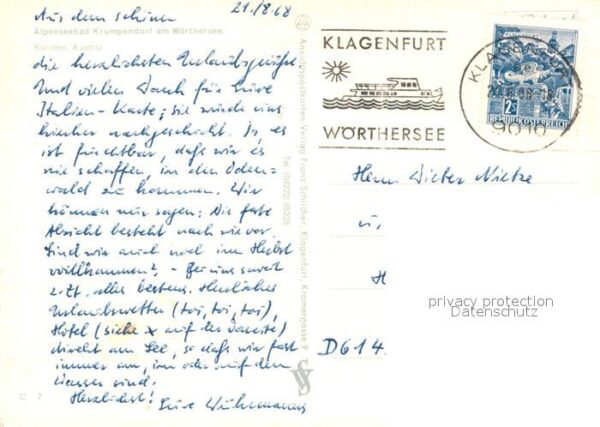 Aus dem schönen 21./8.68
Alpenseebad Krumpendorf am Wörthersee.
Kärnten, Austria
die herzlichsten Urlaubsgrüße.
Und vielen Dank für Eure
Italien-Karte; sie wurde uns
hierher nachgeschickt. Ja, es
ist furchtbar, daß wir es
nie schaffen, in den Oden-
wald zu kommen. Wir
können nur sagen: Die feste
Absicht besteht nach wie vor.
Sind wir auch noch im Herbst
willkommen? - Bei uns soweit
z.Zt. alles bestens. Herrliches
Urlaubswetter (toi, toi, toi),
Hotel (siehe x auf der Vorderseite)
direkt am See, so daß wir fast
immer am, im oder auf dem
Wasser sind.
Herzlichst! Eure
C 7
Ansichtspostkarten-Verlag Franz Schilcher, Klagenfurt, Kramergasse 9
Tel. (04222) 85229
KLAGENFURT
WÖRTHERSEE
KLAGENFURT
9010
2S
REPUBLIK ÖSTERREICH
Herrn Dieter
u.
H
D614
privacy protection
Datenschutz